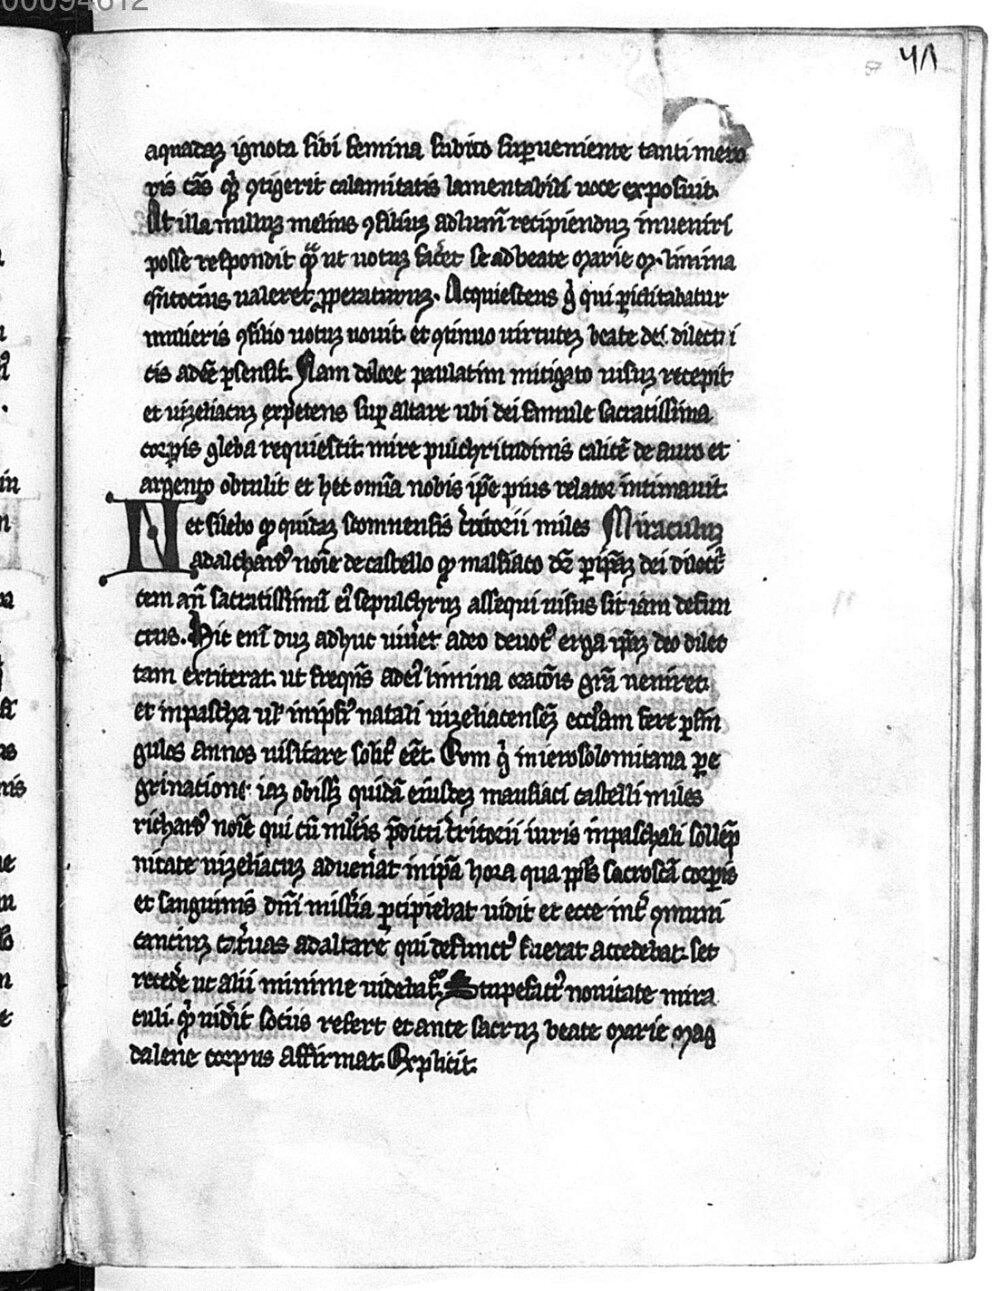 00094612
57 41
aquadaʒ ignota sibi femina subito supueniente tanti mero
ris cās qͥ ꝯtigerit calamitatis lamentabili uoce exposuit.
At illa nulluʒ melius ꝯsiliuʒ ad lum̄ recipienduʒ inueniri
posse respondit qͣ ut uotuʒ facet se ad beate marie m. limina
qn̄tocius ualeret ꝓperaturuʒ. Acquiescens gͦ qui piclitabatur
mulieris ꝯsilio uotuʒ uouit. et ꝯtinuo uirtuteʒ beate dei dilectri
cis adēē psensit. Nam dolore paulatim mitigato uisuʒ recepit
et uizeliacuʒ expetens sup altare ubi dei famule sacratissima
corpis gleba requiescit. mire pulchritudinis calicē de auro et
argento obtulit et hec om̄ia nobis ip̄e prius relator intimauit.
Nec silebo qͦ quidaʒ stomnensis t̄ritorii miles Miraculuʒ
adalchardꝰ noīe de castello qͦ malsiaco dr̄ p ip̄aʒ dei dilect
cem an̄ sacratissimū eiꝰ sepulchruʒ assequi uisus sit iam defun
ctus. Hic eni duʒ adhuc uiuet adeo deuotꝰ erga ip̄aʒ deo dilec
tam extiterat. ut freqn̄s ad eiꝰ limina orac̄ois gr̄a ueniret.
et in pascha ul' in ipsiꝰ natali uizeliacensēʒ eccl'am fere p sin
gulos annos uisitare solitꝰ eēt. Cum gͦ in ierosolomitana pe
grinatione. iaʒ obissʒ quidā eiusdeʒ mausiaci castelli miles
richardꝰ noīe qui cū mltis p̄dicti t̄ritorii iuris in paschali sollēp
nitate uizeliacuʒ aduen̄at in ip̄a hora qua ppl's sacroscā corpis
et sanguinis dn̄i mist̄ia pcipiebat uidit et ecce int̄ ꝯmuni
cantiuʒ cat̄uas ad altare qui defunctꝰ fuerat accedebat. set
recede ut alii minime uidebat. Stupefactꝰ nouitate mira
culi. qͥ uid̄it sociis refert et ante sacruʒ beate marie mag
dalene corpus affirmat. Explicit.